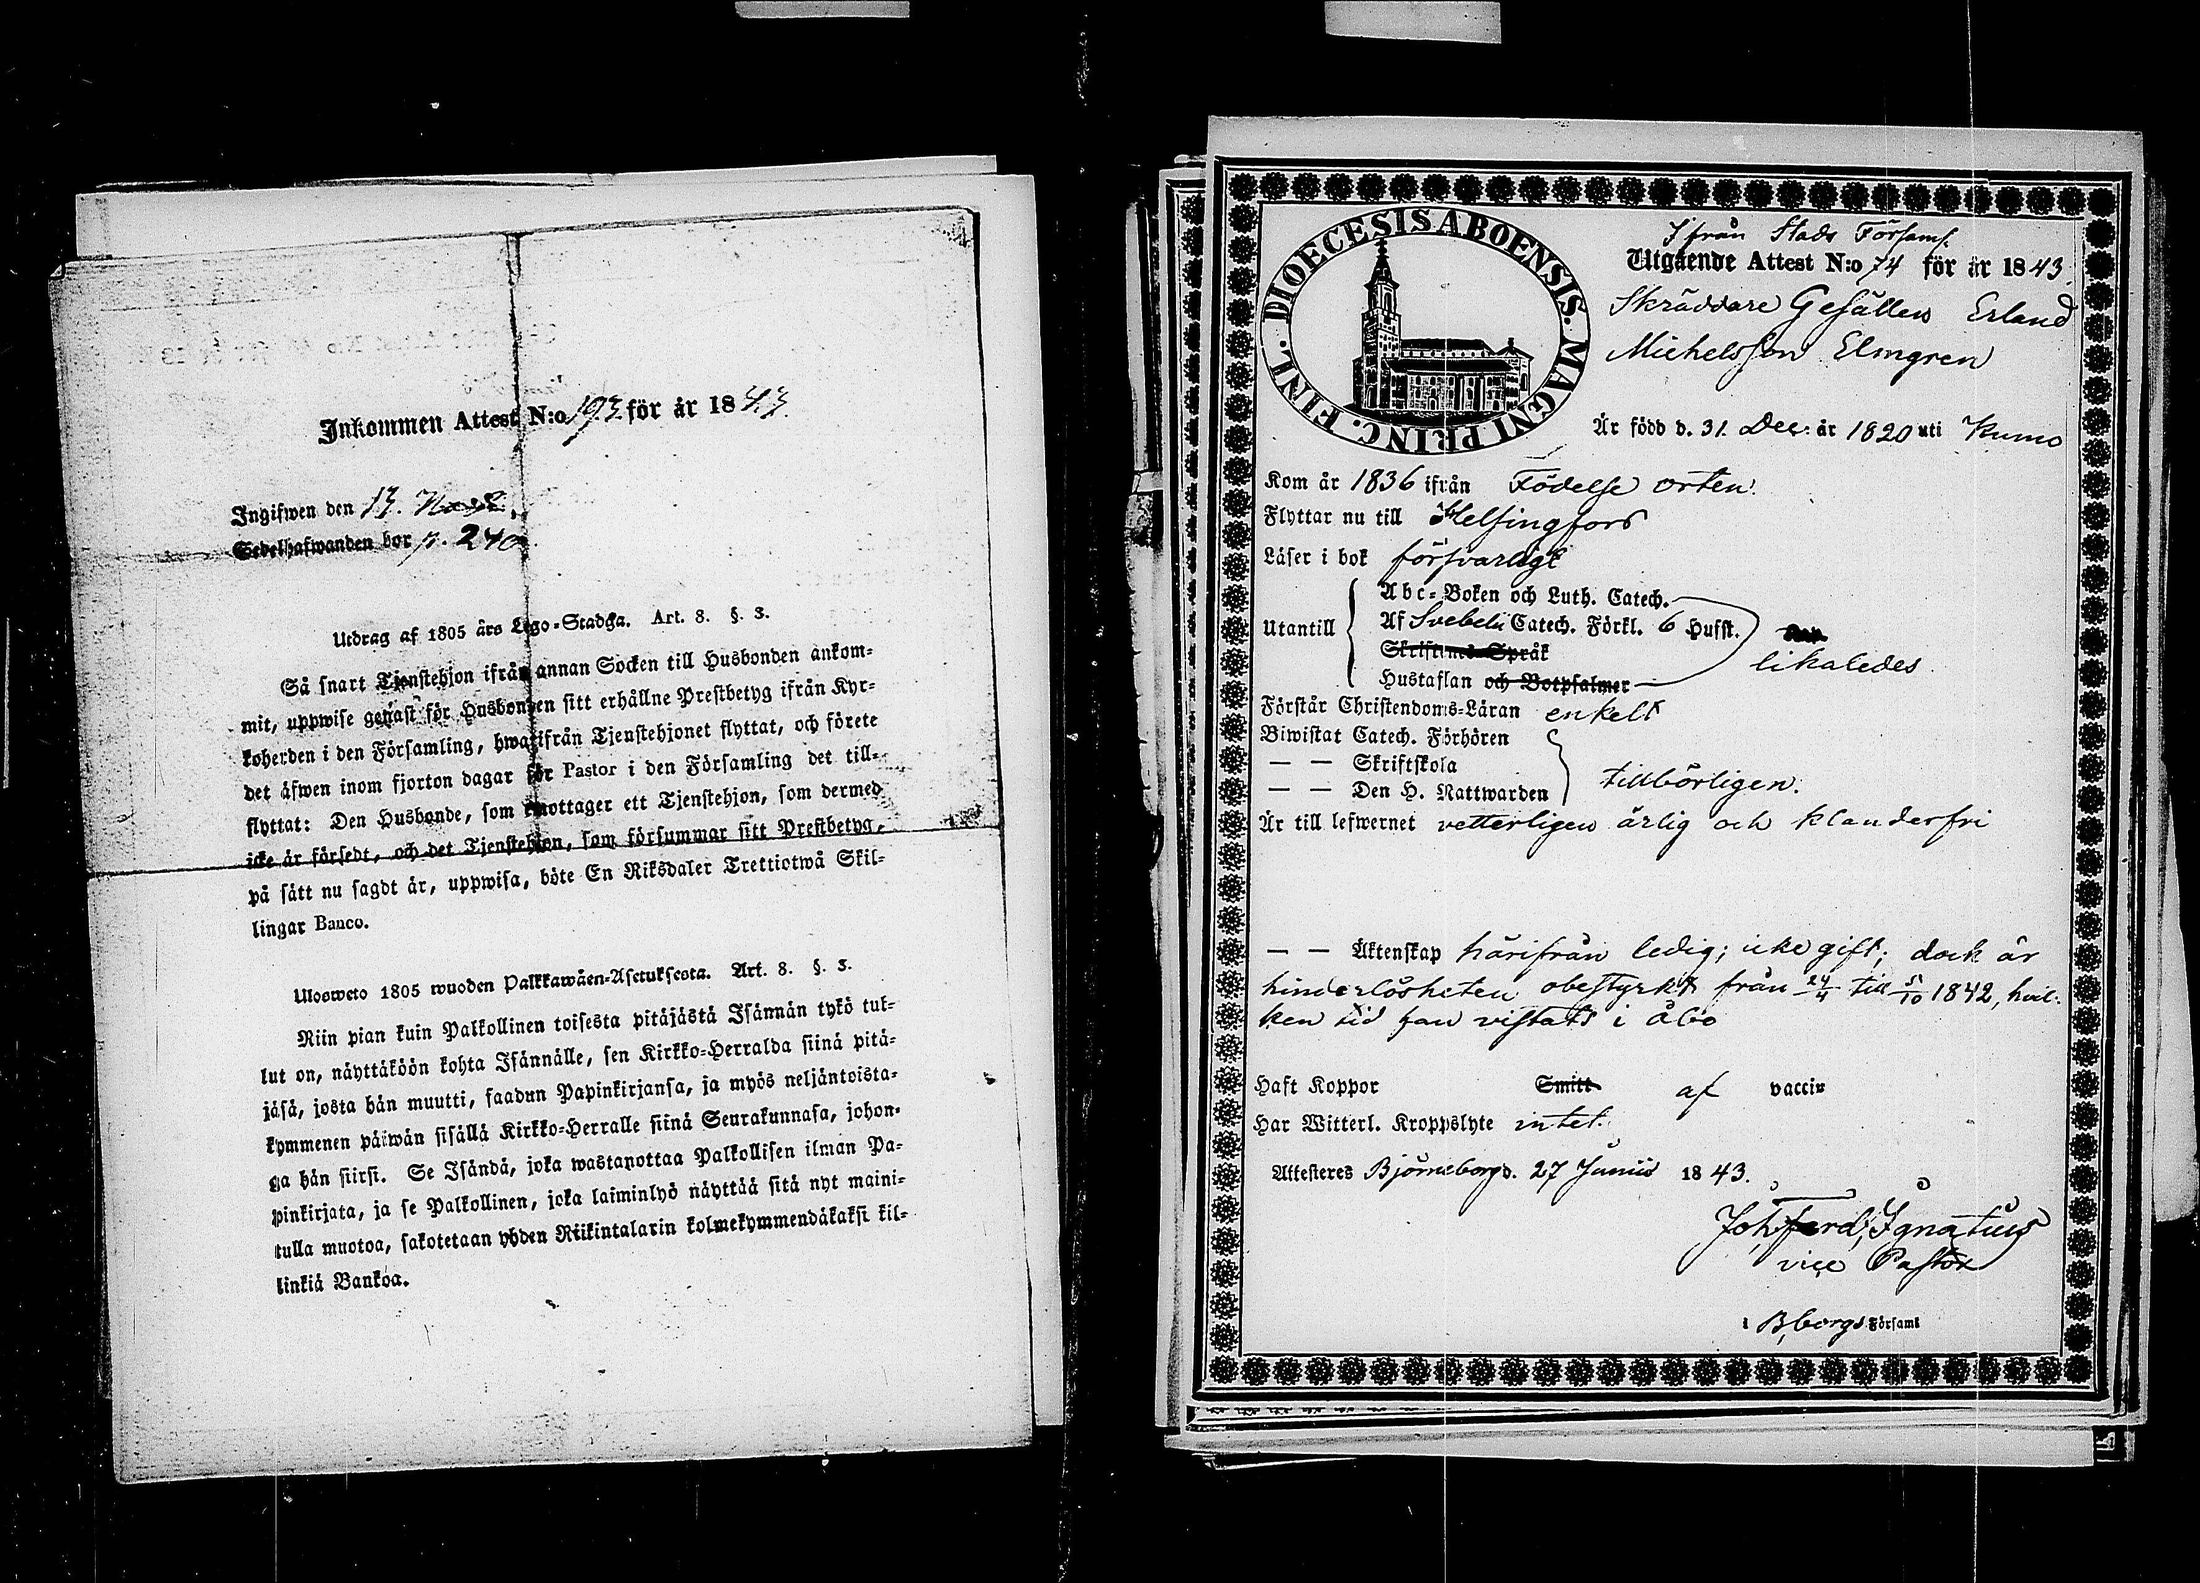 Inkommen Attest N:o 193 för år 1843.
Ingifwen den 13.
Sedelhafwanden bor p. 240.
Utdrag af 1805 års Lego-Stadga. Art. 8. §. 3.
Så snart Tjenstehjon ifrån annan Socken till Husbonden ankom-
mit, uppwise genast för Husbonden sitt erhållne Prestbetyg ifrån Kyr-
koherden i den Församling, hwarifrån Tjenstehjonet flyttat, och förete
det äfwen inom fjorton dagar för Pastor i den Församling det till-
flyttat: Den Husbonde, som emottager ett Tjenstehjon, som dermed
icke är försedt, och det Tjenstehjon, som försummar sitt Prestbetyg,
på sätt nu sagdt är, uppwisa, böte En Riksdaler Trettiotwå Skil-
lingar Banco.
Ulosweto 1805 wuoden Palkkawäen-Asetuksesta. Art. 8. §. 3.
Niin pian kuin Palkollinen toisesta pitäjästä Isännän tykö tul-
lut on, näyttäköön kohta Isännälle, sen Kirkko-Herralda siinä pitä-
jäsä, josta hän muutti, saadun Papinkirjansa, ja myös neljäntoista-
kymmenen päiwän sisällä Kirkko-Herralle siinä Seurakunnasa, johon-
ga hän siirsi. Se Isändä, joka wastanottaa Palkollisen ilman Pa-
pinkirjata, ja se Palkollinen, joka laiminlyö näyttää sitä nyt maini-
tulla muotoa, sakotetaan yhden Riikintalarin kolmekymmendäkaksi kil-
linkiä Bankoa.
DIOECESIS ABOENSIS. MAGNI PRINC. FINL.
Ifrån Stads Församl.
Utgående Attest N:o 74 för år 1843.
Skräddare Gesällen Erland
Michelsson Elmgren
Är född d. 31. Dec: år 1820 uti Kumo
Kom år 1836 ifrån Födelse orten.
Flyttar nu till Helsingfors
Läser i bok försvarligt
Abc-Boken och Luth. Catech.
Utantill Af Svebelii Catech. Förkl. 6 Hufst.
Skriftenes Språk
likaledes
Hustaflan och Botpsalmer
Förstår Christendoms-Läran enkelt
Biwistat Catech. Förhören
— — Skriftskola
tillbörligen.
— — Den H. Nattwarden
Är till lefwernet vetterligen ärlig och klanderfri
— — Äktenskap härifrån ledig; icke gift; dock är
hinderlösheten obestyrkt från 24/4 till 5/10 1842, hvil-
ken tid han vistats i Åbo
Haft Koppor Smitt af vaccin
Har Witterl. Kroppslyte intet.
Attesteres Björneborg d. 27 Junii 1843.
Joh, Ferd, Ignatius
vice Pastor
i B,borgs Församl